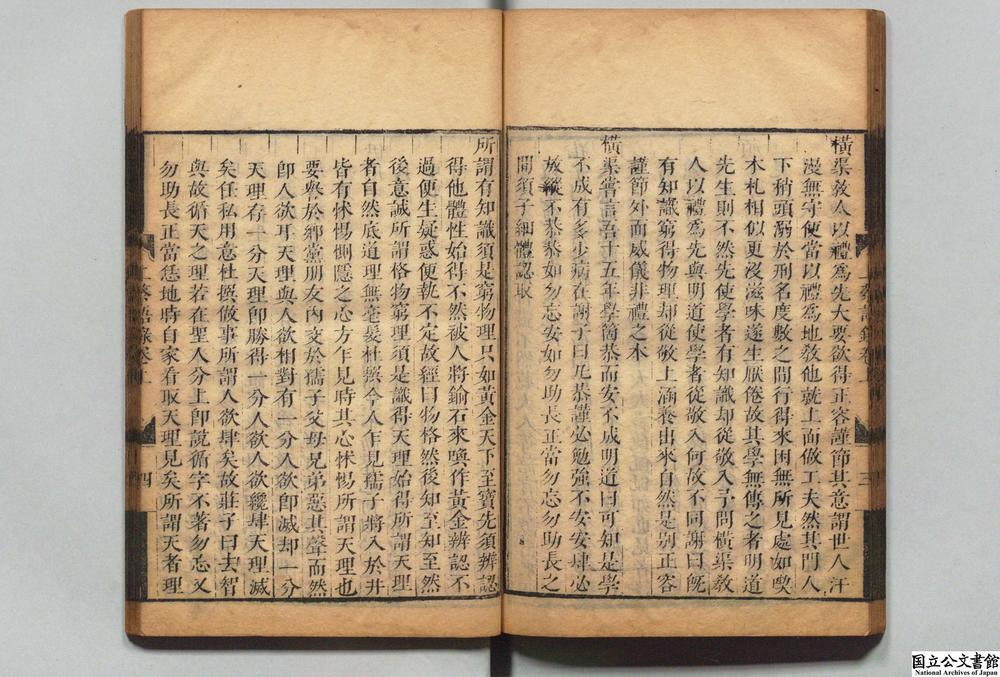 橫渠敎人以禮爲先大要欲得正容謹節其意謂世人汗
漫無守便當以禮爲地敎他就上面做工夫然其門人
下稍頭溺於刑名度數之間行得來困無所見處如喫
木札相似更沒滋味遂生厭倦故其學無傳之者明道
先生則不然先使學者有知識却從敬入予問橫渠敎
人以禮爲先與明道使學者從敬入何故不同謝曰旣
有知識窮得物理却從敬上涵養出來自然是别正容
謹節外面威儀非禮之本
橫渠嘗言吾十五年學箇恭而安不成明道曰可知是學
不成有多少病在謝子曰凡恭謹必勉強不安安肆必
放縱不恭恭如勿忘安如勿助長正當勿忘勿助長之
間須子細體認取
所謂有知識須是窮物理只如黃金天下至寶先須辨認
得他體性始得不然被人將鍮石來喚作黃金辨認不
過便生疑惑便執不定故經曰物格然後知至知至然
後意誠所謂格物窮理須是識得天理始得所謂天理
者自然底道理無毫髮杜撰今人乍見孺子將入於井
皆有怵惕惻隱之心方乍見時其心怵惕所謂天理也
要譽於鄉黨朋友內交於孺子父母兄弟惡其聲而然
卽人欲耳天理與人欲相對有一分人欲卽滅却一分
天理存一分天理卽勝得一分人欲人欲纔肆天理滅
矣任私用意杜撰做事所謂人欲肆矣故莊子曰去智
與故循天之理若在聖人分上卽說循字不著勿忘又
勿助長正當恁地時自家看取天理見矣所謂天者理
上蔡語錄卷上
三
上蔡語錄卷上
四
国立公文書館
National Archives of Japan